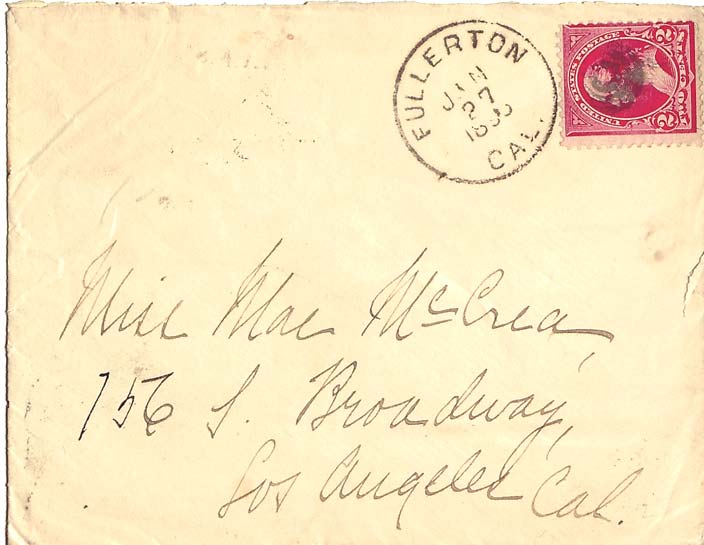 FULLERTON
JAN
27
CAL.
UNITED STATES POSTAGE
2 CENTS 2
Miss Mae McCrea,
756 S. Broadway,
Los Angeles Cal.